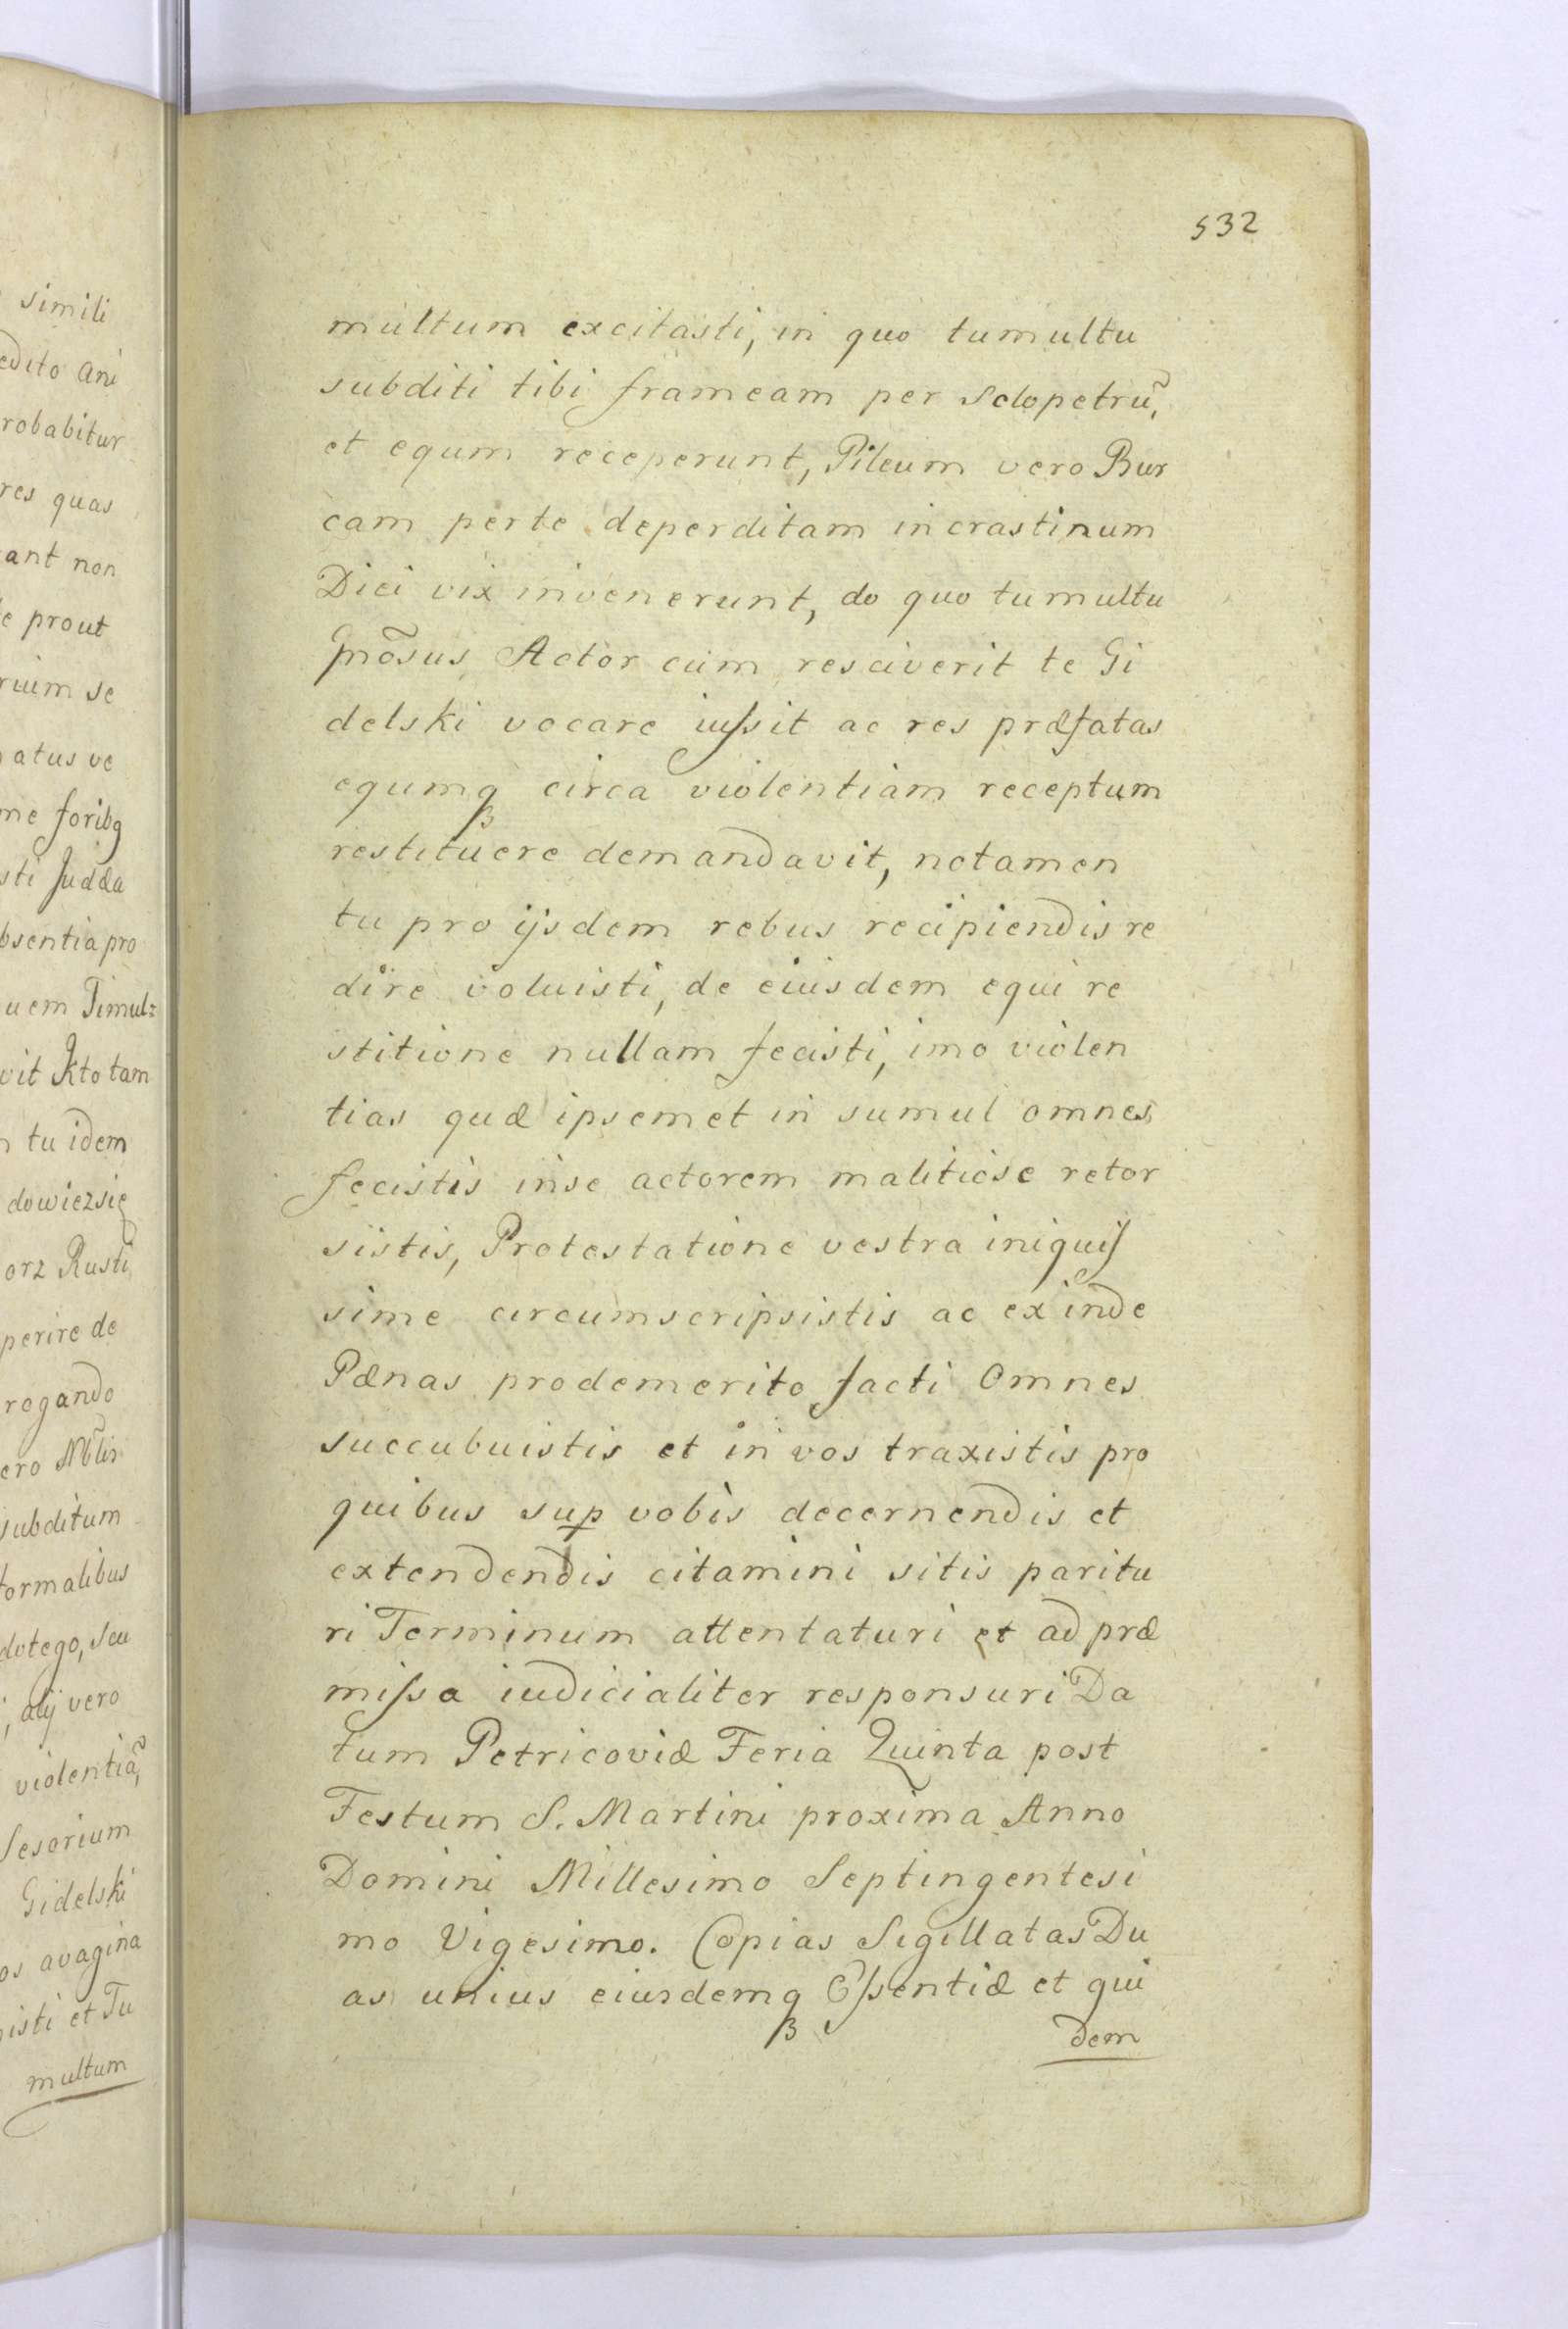 simili
edito ani
robabitur
res quas
ant non
e prout
rium se
atus ve
me foribq
sti Judda
bsentia pro
uem Timul=
vit Kto tam
tu idem
dowiezsię
orz Rusti
perire de
rogando
ero Nblis
subditum
formalibus
dotego, seu
, alij vero
violentiã,
sesorium
Gidelski
os avagina
isti et Tu
multum
532
multum excitasti, in quo tumultu
subditi tibi frameam per Sclopetrũ,
et equum receperunt, Pileum vero Bur
cam perte deperditam in crastinum
Diei vix invenerunt, do quo tumultu
Gnõsus Actor cum resciverit te Gi
delski vocare iuſsit ac res præfatas
equmqꝫ circa violentiam receptum
restituere demandavit, notamen
tu pro ijsdem rebus recipiendis re
dire voluisti, de eiusdem equi re
stitione nullam fecisti, imo violen
tias quæ ipsemet in sumul omnes
fecistis inse actorem malitiose retor
sistis, Protestatione vestra iniquiſ
sime circumscripsistis ac exinde
Pænas prodemerito facti Omnes
succubuistis et in vos traxistis pro
quibus sup vobis decernendis et
extendendis citamini sitis paritu
ri Terminum attentaturi et ad præ
miſsa iudicialiter responsuri Da
tum Petricoviæ Feria Quinta post
Festum S. Martini proxima Anno
Domini Millesimo Septingentesi
mo Vigesimo. Copias Sigillatas Du
as unius eiusdemqꝫ Eſsentiæ et qui
dem